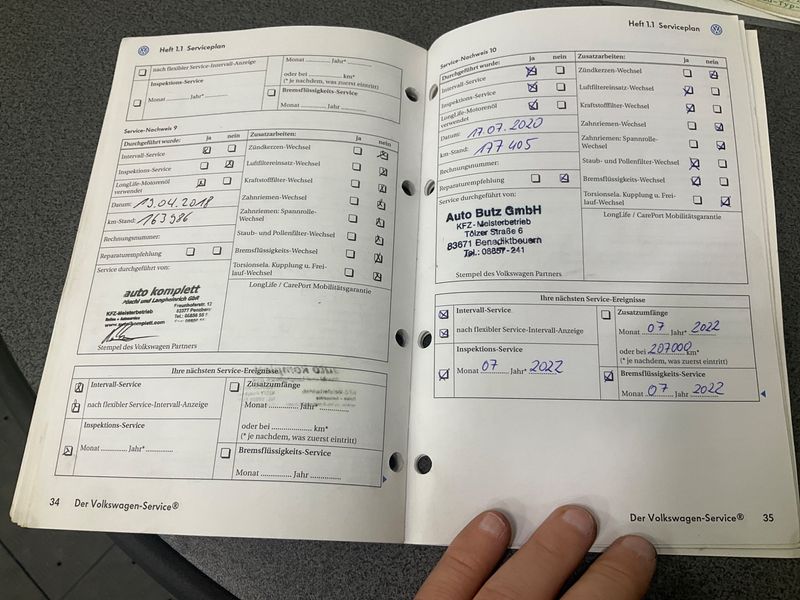 Heft 1.1 Serviceplan
nach flexibler Service-Intervall-Anzeige
Inspektions-Service
Monat Jahr*
Monat Jahr*
oder bei km*
(* je nachdem, was zuerst eintritt)
Bremsflüssigkeits-Service
Monat Jahr
Service-Nachweis 9
Durchgeführt wurde: ja nein
Intervall-Service
Inspektions-Service
LongLife-Motorenöl
verwendet
Datum: 19.04.2018
km-Stand: 163986
Rechnungsnummer:
Reparaturempfehlung
Service durchgeführt von:
auto komplett
KFZ-Meisterbetrieb
www.autokomplett.com
Stempel des Volkswagen Partners
Zusatzarbeiten: ja nein
Zündkerzen-Wechsel
Luftfiltereinsatz-Wechsel
Kraftstofffilter-Wechsel
Zahnriemen-Wechsel
Zahnriemen: Spannrolle-
Wechsel
Staub- und Pollenfilter-Wechsel
Bremsflüssigkeits-Wechsel
Torsionsela. Kupplung u. Frei-
lauf-Wechsel
LongLife / CarePort Mobilitätsgarantie
Ihre nächsten Service-Ereignisse
Intervall-Service
nach flexibler Service-Intervall-Anzeige
Inspektions-Service
Monat Jahr*
Zusatzumfänge
Monat Jahr*
oder bei km*
(* je nachdem, was zuerst eintritt)
Bremsflüssigkeits-Service
Monat Jahr
34 Der Volkswagen-Service®
Heft 1.1 Serviceplan
Service-Nachweis 10
Durchgeführt wurde: ja nein
Intervall-Service
Inspektions-Service
LongLife-Motorenöl
verwendet
Datum: 17.07.2020
km-Stand: 177405
Rechnungsnummer:
Reparaturempfehlung
Service durchgeführt von:
Auto Butz GmbH
KFZ-Meisterbetrieb
Tölzer Straße 6
83671 Benediktbeuern
Tel.: 08857-241
Stempel des Volkswagen Partners
Zusatzarbeiten: ja nein
Zündkerzen-Wechsel
Luftfiltereinsatz-Wechsel
Kraftstofffilter-Wechsel
Zahnriemen-Wechsel
Zahnriemen: Spannrolle-
Wechsel
Staub- und Pollenfilter-Wechsel
Bremsflüssigkeits-Wechsel
Torsionsela. Kupplung u. Frei-
lauf-Wechsel
LongLife / CarePort Mobilitätsgarantie
Ihre nächsten Service-Ereignisse
Intervall-Service
nach flexibler Service-Intervall-Anzeige
Inspektions-Service
Monat 07 Jahr* 2022
Zusatzumfänge
Monat 07 Jahr* 2022
oder bei 207000 km*
(* je nachdem, was zuerst eintritt)
Bremsflüssigkeits-Service
Monat 07 Jahr 2022
Der Volkswagen-Service® 35